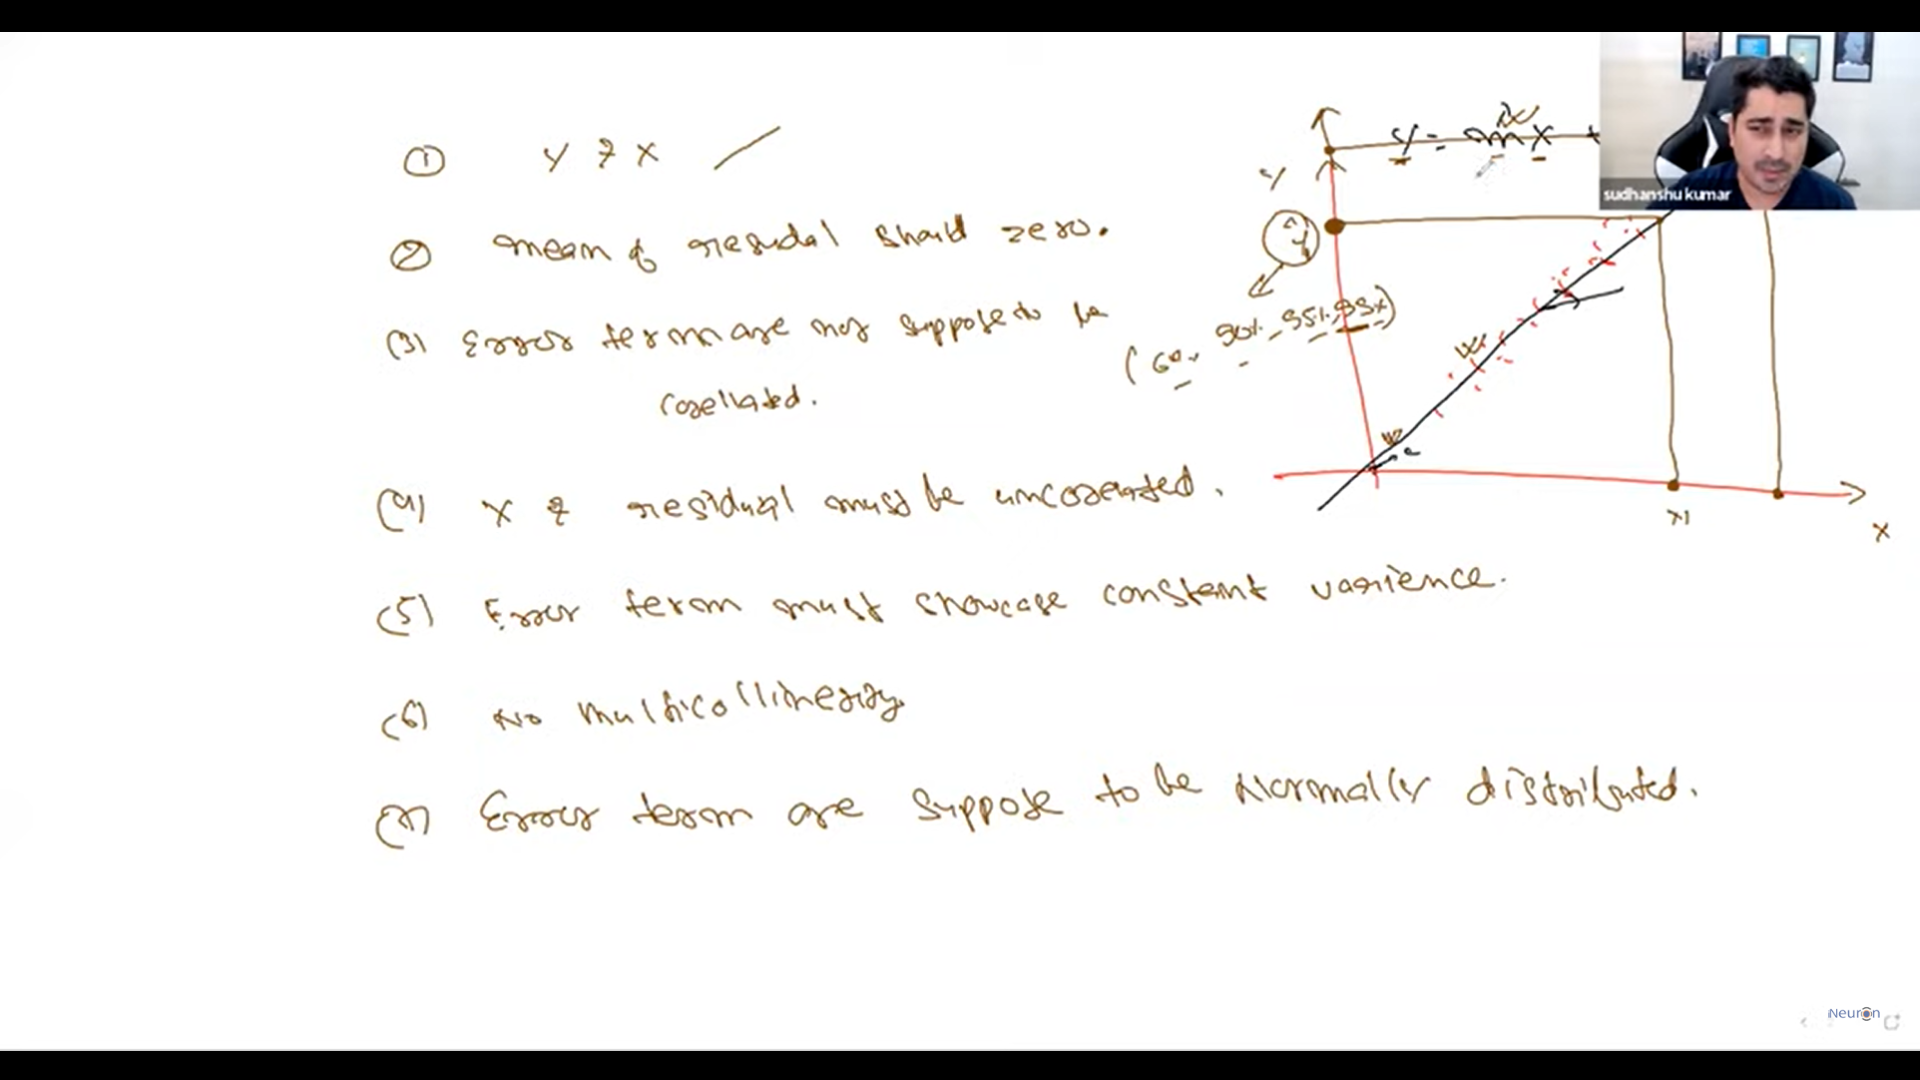 ① y & x
② mean of residal should zero.
(3) Error term are not suppose to be
corellated.
(4) x & residual must be uncorelated.
(5) Error term must showcase constant varience.
(6) No multicollinerity
(7) Error term are suppose to be Normally distributed.
y = mx +
y
ŷ
90% - 95%
c
x1
x
sudhanshu kumar
iNeuron